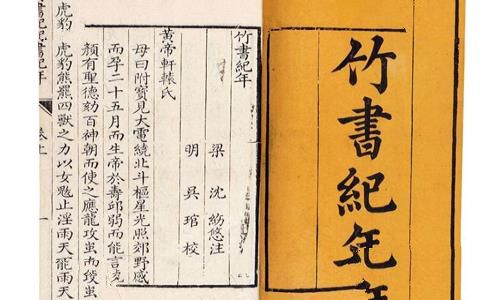 竹書紀年
竹書紀年
梁 沈 注
明 吳 琯 校
黃帝軒轅氏
母曰附寶見大電繞北斗樞星光照郊野感
而孕二十五月而生帝於壽邱弱而能言
顏有聖德劾百神朝而使之應龍攻蚩
虎豹熊羆四獸之力以女魃止淫雨天
書紀年
卷上
虎豹